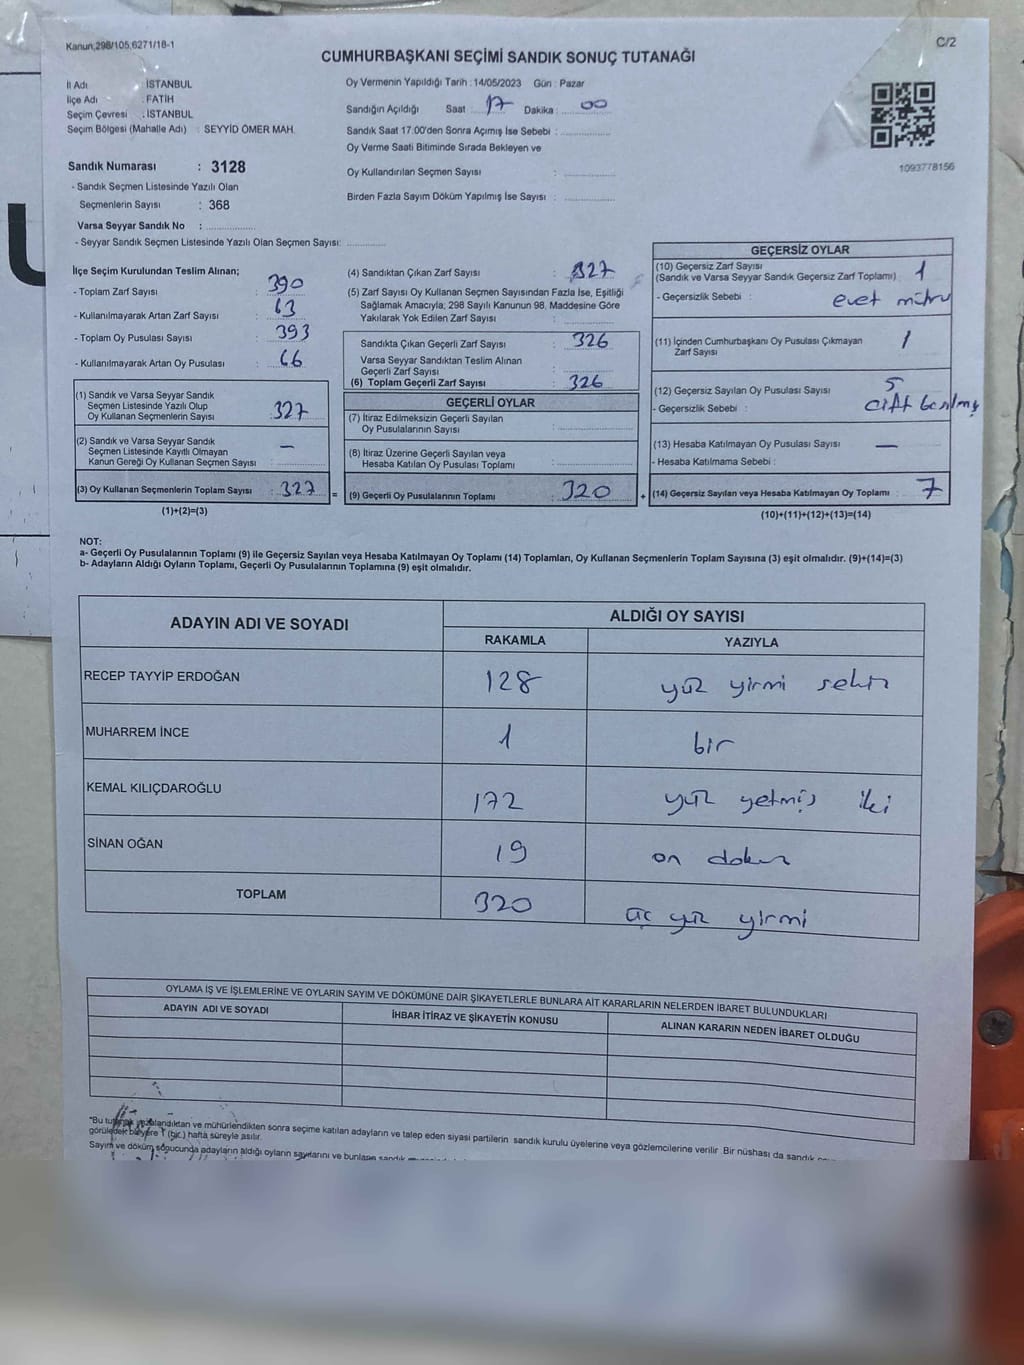 Kanun;298/105;6271/18-1
C/2
CUMHURBAŞKANI SEÇİMİ SANDIK SONUÇ TUTANAĞI
İl Adı : İSTANBUL
İlçe Adı : FATİH
Seçim Çevresi : İSTANBUL
Seçim Bölgesi (Mahalle Adı) : SEYYİD ÖMER MAH.
Oy Vermenin Yapıldığı Tarih : 14/05/2023 Gün : Pazar
Sandığın Açıldığı Saat : 17 Dakika : 00
Sandık Saat 17.00'den Sonra Açımış İse Sebebi :
Oy Verme Saati Bitiminde Sırada Bekleyen ve
Oy Kullandırılan Seçmen Sayısı :
Birden Fazla Sayım Döküm Yapılmış İse Sayısı :
1093778156
Sandık Numarası : 3128
- Sandık Seçmen Listesinde Yazılı Olan
Seçmenlerin Sayısı : 368
Varsa Seyyar Sandık No :
- Seyyar Sandık Seçmen Listesinde Yazılı Olan Seçmen Sayısı:
İlçe Seçim Kurulundan Teslim Alınan;
- Toplam Zarf Sayısı : 390
- Kullanılmayarak Artan Zarf Sayısı : 63
- Toplam Oy Pusulası Sayısı : 393
- Kullanılmayarak Artan Oy Pusulası : 66
(1) Sandık ve Varsa Seyyar Sandık
Seçmen Listesinde Yazılı Olup
Oy Kullanan Seçmenlerin Sayısı : 327
(2) Sandık ve Varsa Seyyar Sandık
Seçmen Listesinde Kayıtlı Olmayan
Kanun Gereği Oy Kullanan Seçmen Sayısı : —
(3) Oy Kullanan Seçmenlerin Toplam Sayısı : 327
(1)+(2)=(3)
(4) Sandıktan Çıkan Zarf Sayısı : 327
(5) Zarf Sayısı Oy Kullanan Seçmen Sayısından Fazla İse, Eşitliği
Sağlamak Amacıyla; 298 Sayılı Kanunun 98. Maddesine Göre
Yakılarak Yok Edilen Zarf Sayısı :
Sandıkta Çıkan Geçerli Zarf Sayısı : 326
Varsa Seyyar Sandıktan Teslim Alınan
Geçerli Zarf Sayısı :
(6) Toplam Geçerli Zarf Sayısı : 326
GEÇERLİ OYLAR
(7) İtiraz Edilmeksizin Geçerli Sayılan
Oy Pusulalarının Sayısı :
(8) İtiraz Üzerine Geçerli Sayılan veya
Hesaba Katılan Oy Pusulası Toplamı :
= (9) Geçerli Oy Pusulalarının Toplamı : 320
GEÇERSİZ OYLAR
(10) Geçersiz Zarf Sayısı
(Sandık ve Varsa Seyyar Sandık Geçersiz Zarf Toplamı) : 1
- Geçersizlik Sebebi : evet mührü
(11) İçinden Cumhurbaşkanı Oy Pusulası Çıkmayan
Zarf Sayısı : 1
(12) Geçersiz Sayılan Oy Pusulası Sayısı : 5
- Geçersizlik Sebebi : çift basılmış
(13) Hesaba Katılmayan Oy Pusulası Sayısı : —
- Hesaba Katılmama Sebebi :
+ (14) Geçersiz Sayılan veya Hesaba Katılmayan Oy Toplamı : 7
(10)+(11)+(12)+(13)=(14)
NOT:
a- Geçerli Oy Pusulalarının Toplamı (9) ile Geçersiz Sayılan veya Hesaba Katılmayan Oy Toplamı (14) Toplamları, Oy Kullanan Seçmenlerin Toplam Sayısına (3) eşit olmalıdır. (9)+(14)=(3)
b- Adayların Aldığı Oyların Toplamı, Geçerli Oy Pusulalarının Toplamına (9) eşit olmalıdır.
ADAYIN ADI VE SOYADI ALDIĞI OY SAYISI
RAKAMLA YAZIYLA
RECEP TAYYİP ERDOĞAN 128 yüz yirmi sekiz
MUHARREM İNCE 1 bir
KEMAL KILIÇDAROĞLU 172 yüz yetmiş iki
SİNAN OĞAN 19 on dokuz
TOPLAM 320 üç yüz yirmi
OYLAMA İŞ VE İŞLEMLERİNE VE OYLARIN SAYIM VE DÖKÜMÜNE DAİR ŞİKAYETLERLE BUNLARA AİT KARARLARIN NELERDEN İBARET BULUNDUKLARI
ADAYIN ADI VE SOYADI İHBAR İTİRAZ VE ŞİKAYETİN KONUSU ALINAN KARARIN NEDEN İBARET OLDUĞU
"Bu tutanak imzalandıktan ve mühürlendikten sonra seçime katılan adayların ve talep eden siyasi partilerin sandık kurulu üyelerine veya gözlemcilerine verilir. Bir nüshası da sandık
görülecek bir yere 1 (bir) hafta süreyle asılır.
Sayım ve döküm sonucunda adayların aldığı oyların sayılarını ve bunların sandık